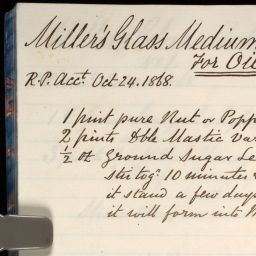 Miller's Glass Medium
For Oil
R.P. Acct. Oct 24. 1868.
1 pint pure Nut or Popp
2 pints dble Mastic Var
½ oz Ground Sugar Le
stir togr. 10 minutes &
it stand a few days
it will form into